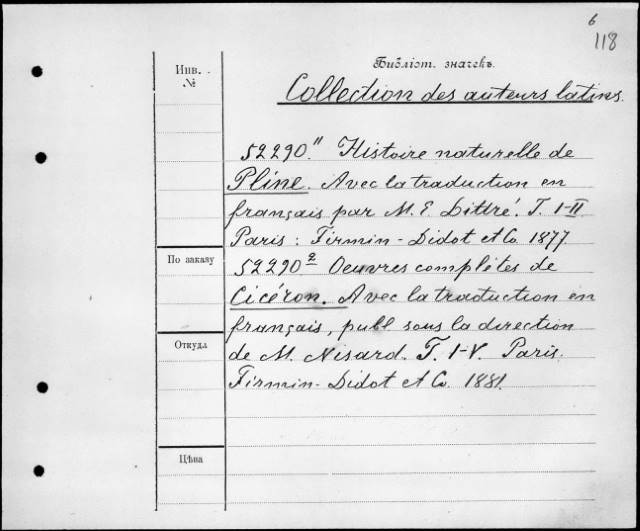 6
118
Инв. №
Библіот. значекъ.
Collection des auteurs latins.
52290." Histoire naturelle de
Pline. Avec la traduction en
français par M. E. Littré. T. I-II
Paris: Firmin-Didot et Co. 1877.
По заказу
52290 2 Oeuvres complètes de
Cicéron. Avec la traduction en
français, publ. sous la direction
Откуда
de M. Nisard. T. I-V. Paris.
Firmin-Didot et Co. 1881.
Цѣна